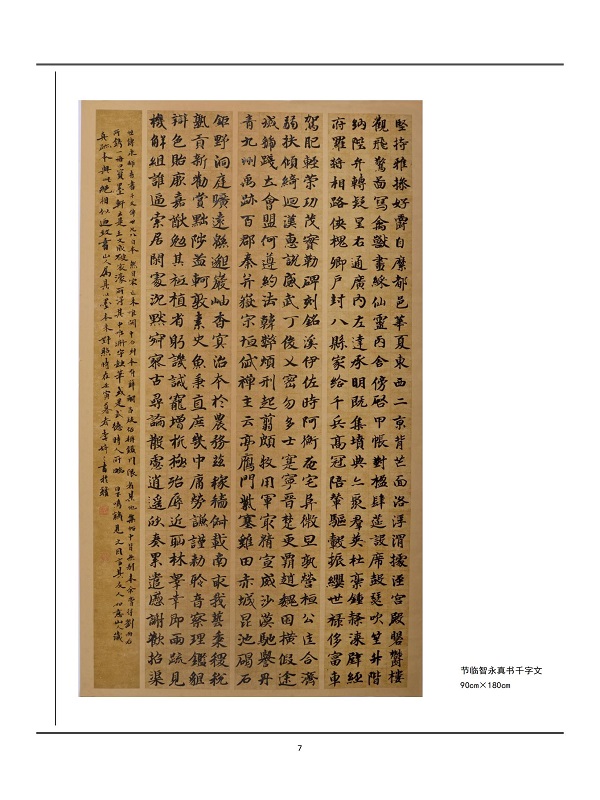 堅持雅操好爵自縻都邑華夏東西二京背芒面洛浮渭據涇宮殿盤鬱樓
觀飛驚啚寫禽獸畫綵仙靈丙舍傍啓甲帳對楹肆筵設席鼓瑟吹笙升階
納陛弁轉疑星右通廣內左達承明既集墳典亦聚群英杜稾鍾隸漆壁經
府羅將相路俠槐卿戶封八縣家給千兵高冠陪輦驅轂振纓世祿侈富車
駕肥輕策功茂實勒碑刻銘溪伊佐時阿衡奄宅微旦孰營桓公匡合濟
弱扶傾綺迴漢惠說感武丁俊乂密勿多士寔寧晉楚更霸趙魏困橫假途
滅虢踐土會盟何遵約法韓弊煩刑起翦頗牧用軍最精宣威沙漠馳譽丹
青九州禹跡百郡秦并嶽宗恒岱禪主云亭鴈門紫塞雞田赤城昆池碣石
鉅野洞庭曠遠緜邈巖岫杳冥治本於農務茲稼穡俶載南畝我藝黍稷稅
熟貢新勸賞黜陟孟軻敦素史魚秉直庶幾中庸勞謙謹勑聆音察理鑑貌
辯色貽厥嘉猷勉其祗植省躬譏誡寵增抗極殆辱近恥林皋幸即兩疏見
機解組誰逼索居閑處沉默寂寥古尋論散慮逍遙欣奏累遣慼謝歡招渠
节临智永真书千字文
90cm×180cm
7